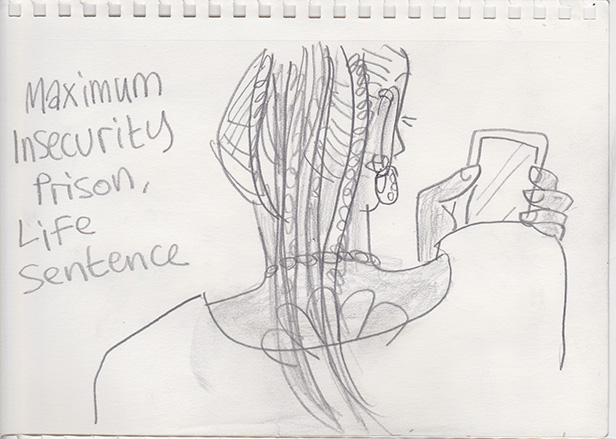 Maximum
Insecurity
Prison,
Life
Sentence